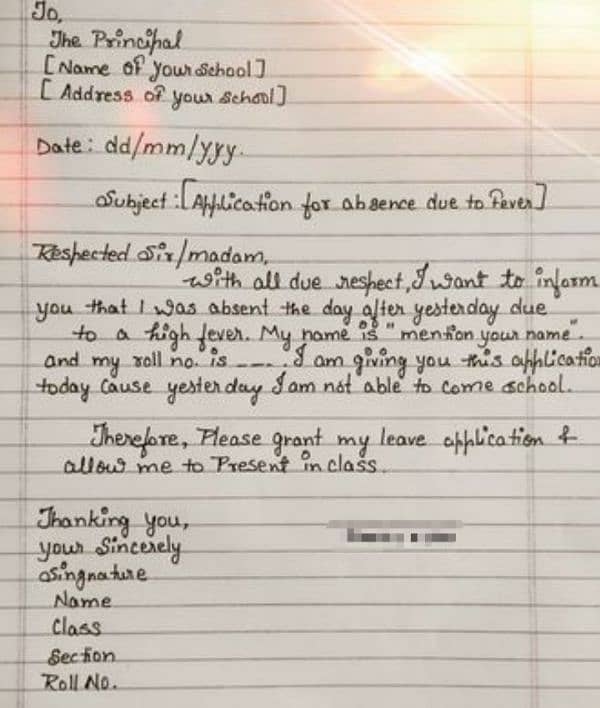 To,
The Principal
[Name of your school]
[Address of your school]
Date: dd/mm/yyy.
Subject:[Application for absence due to Fever]
Respected Sir/madam,
with all due respect, I want to inform
you that I was absent the day after yesterday due
to a high fever. My name is "mention your name".
and my roll no. is ----. I am giving you this applicatio
today Cause yesterday I am not able to come school.
Therefore, Please grant my leave application &
allow me to Present in class.
Thanking you,
your Sincerely
Singnature
Name
Class
Section
Roll No.